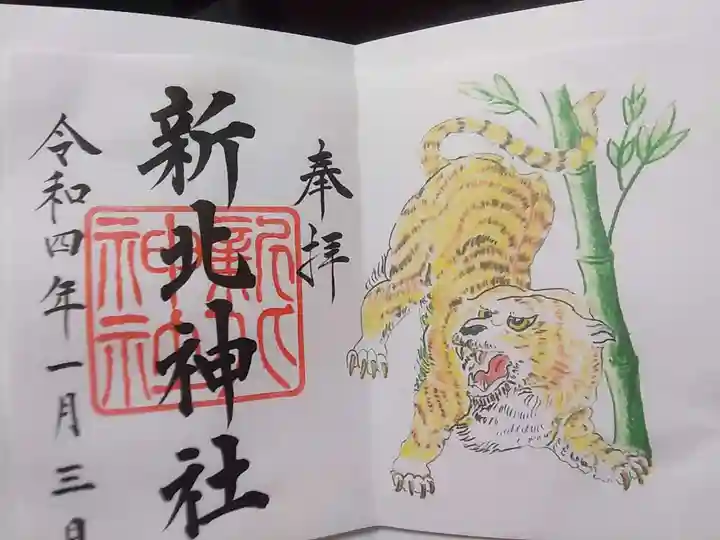 奉拝
新北神社
新北神社
令和四年一月三日